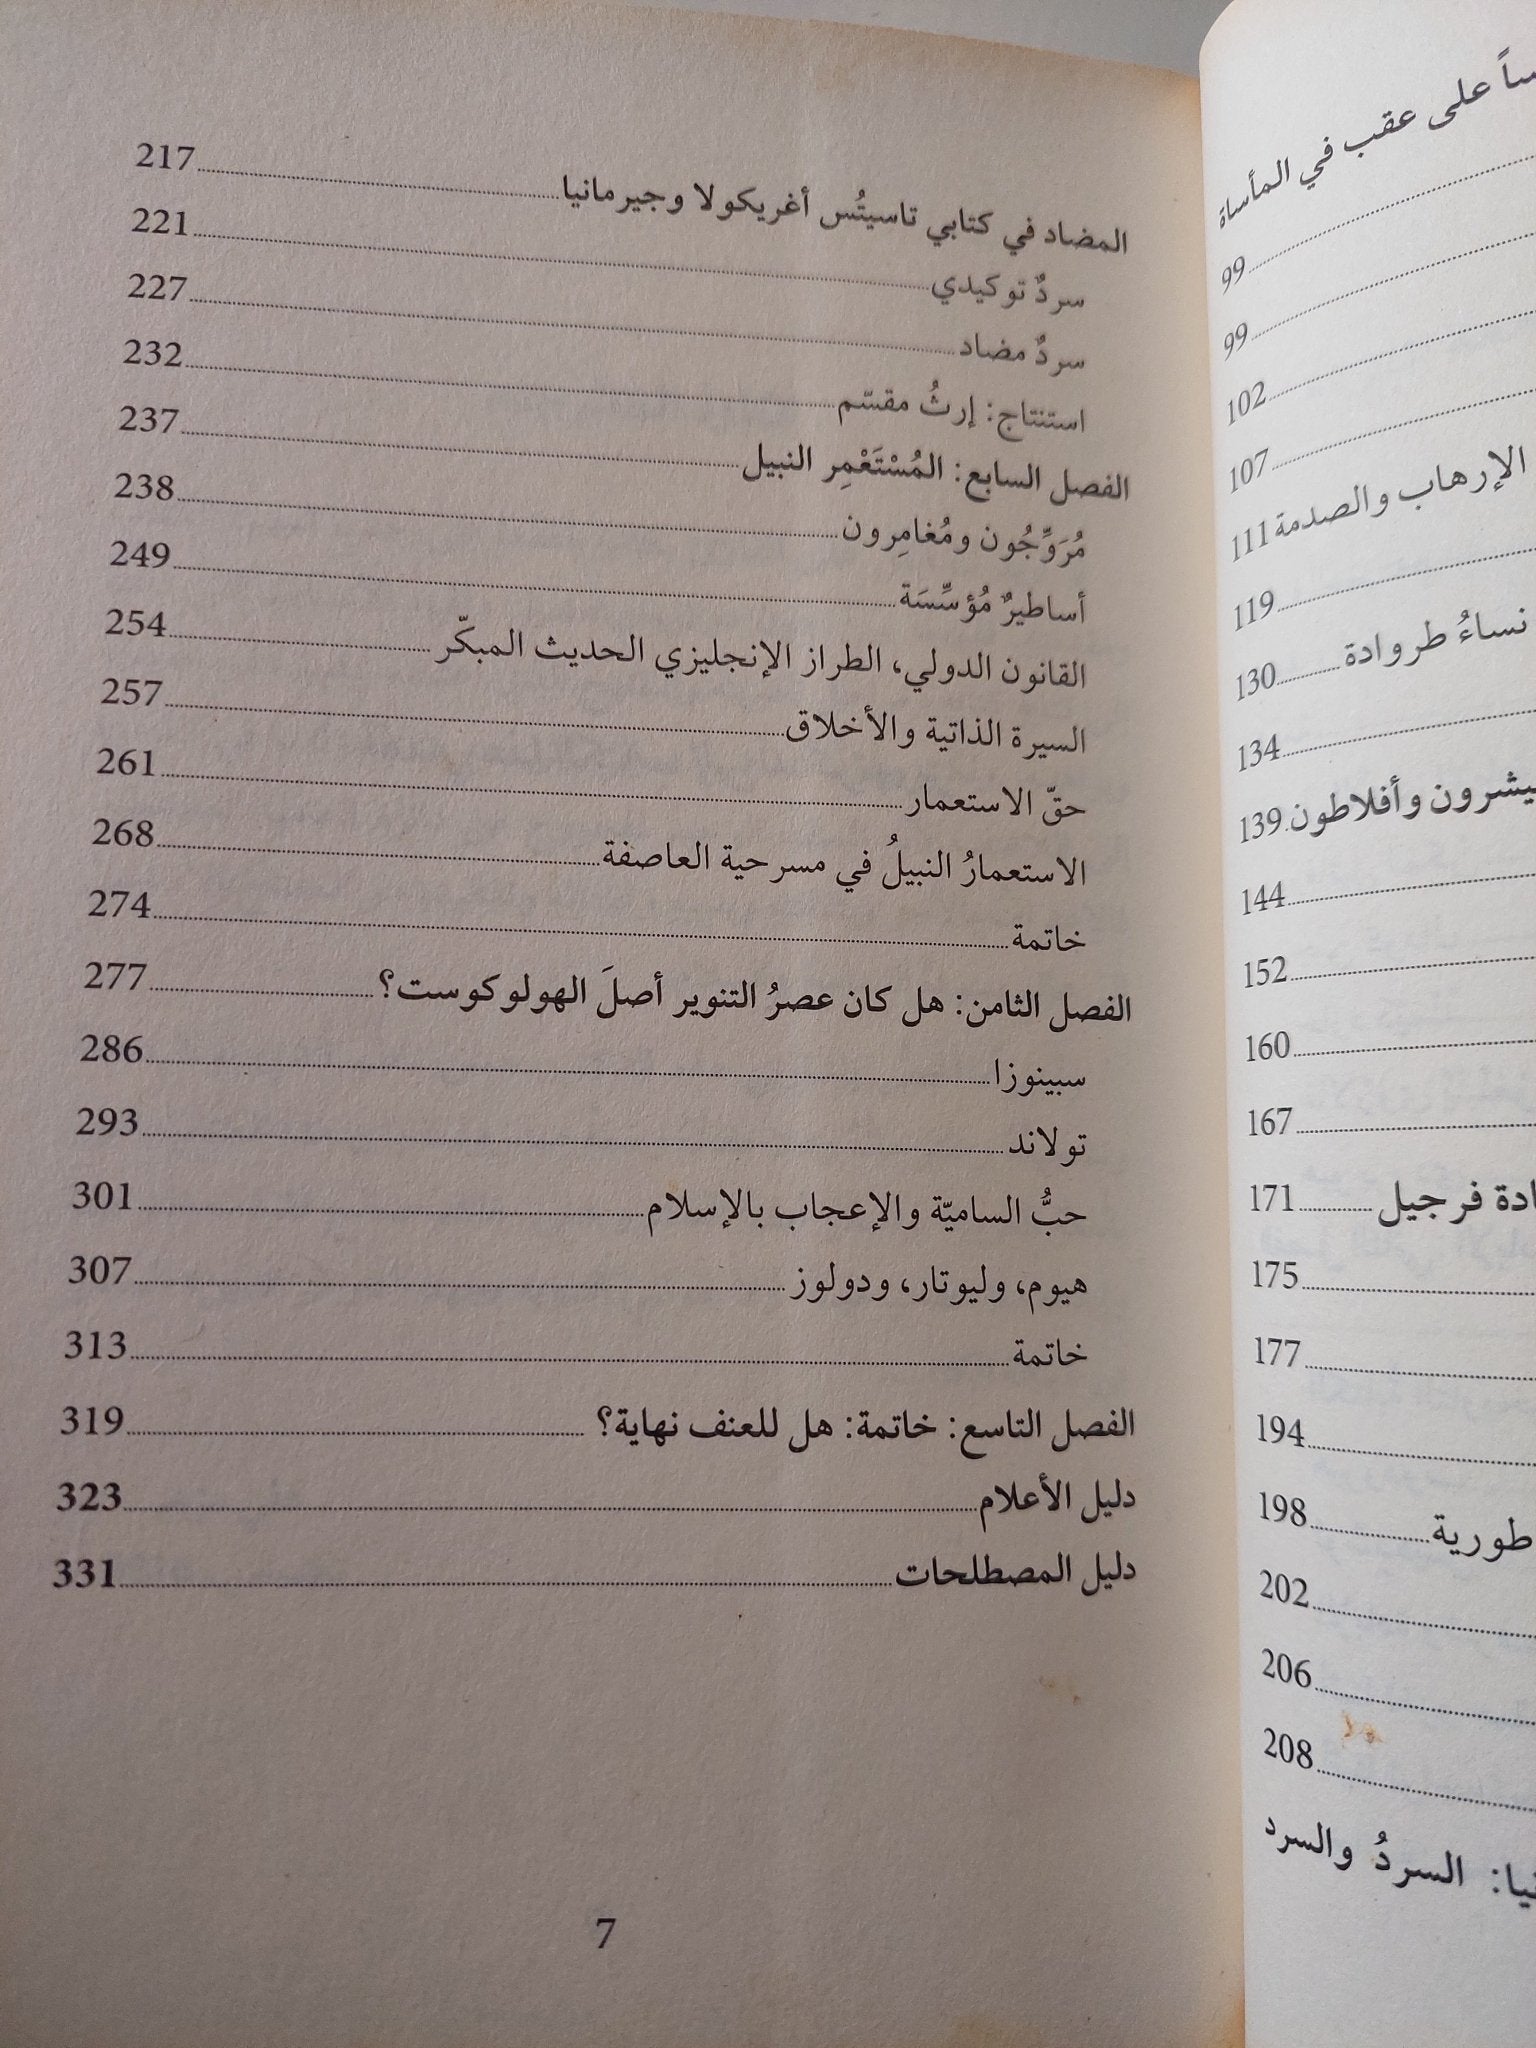 على عقب في المأساة
99
99
102
107
الإرهاب والصدمة 111
119
نساءُ طروادة 130
134
وأفلاطون 139
144
152
160
167
فرجيل 171
175
177
194
198
202
206
208
السردُ والسرد
المضاد في كتابي تاسيتُس أغريكولا وجيرمانيا 217
سردٌ توكيدي 221
سردٌ مضاد 227
استنتاج: إرثُ مقسّم 232
الفصل السابع: المُسْتَعْمِر النبيل 237
مُرَوِّجُون ومُغامِرون 238
أساطيرٌ مُؤسِّسَة 249
القانون الدولي، الطراز الإنجليزي الحديث المبكّر 254
السيرة الذاتية والأخلاق 257
حقّ الاستعمار 261
الاستعمارُ النبيلُ في مسرحية العاصفة 268
خاتمة 274
الفصل الثامن: هل كان عصرُ التنوير أصلَ الهولوكوست؟ 277
سبينوزا 286
تولاند 293
حبُّ الساميّة والإعجاب بالإسلام 301
هيوم، وليوتار، ودولوز 307
خاتمة 313
الفصل التاسع: خاتمة: هل للعنف نهاية؟ 319
دليل الأعلام 323
دليل المصطلحات 331
7